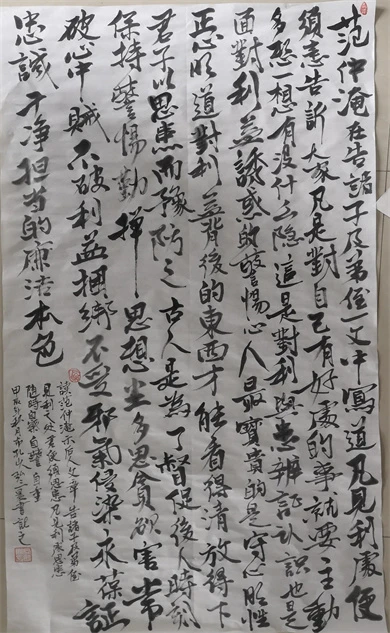 范仲淹在告諸子及弟侄一文中寫道凡見利處便
須患告訴大家凡是對自己有好處的事就要主動
多想一想有没什么隐這是對利與患辨証认識也是
面對利益誘惑的警惕心人最寶貴的是守心明性
正心明道對利益背後的東西才能看得清放得下
君子以思患而豫防之古人是為了督促後人時刻
保持警惕勤撣思想尘多思貪欲害常
破心中賊不破利益捆綁不受邪氣侵染永葆
忠誠干净担当的廉洁本色
談范仲淹示后人文章告諸子及弟侄
見利之處者便須思患凡見利處思患
隨時自 自警自省
甲辰年秋月 書記之